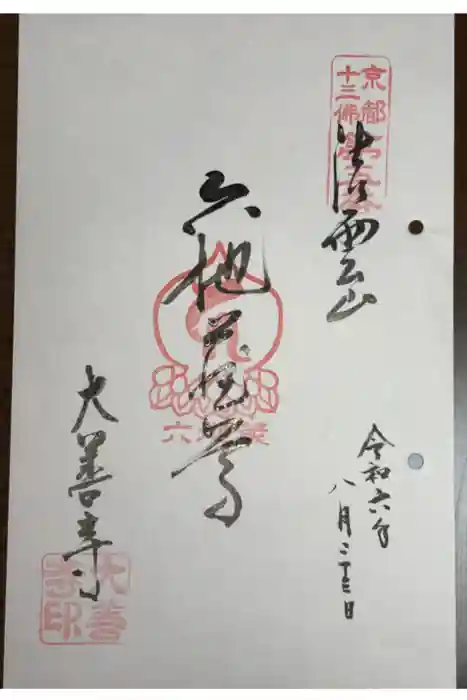 京都
十三佛
第五番
法雲山
六地蔵尊
令和六年
八月二十三日
大善寺
大善
寺印